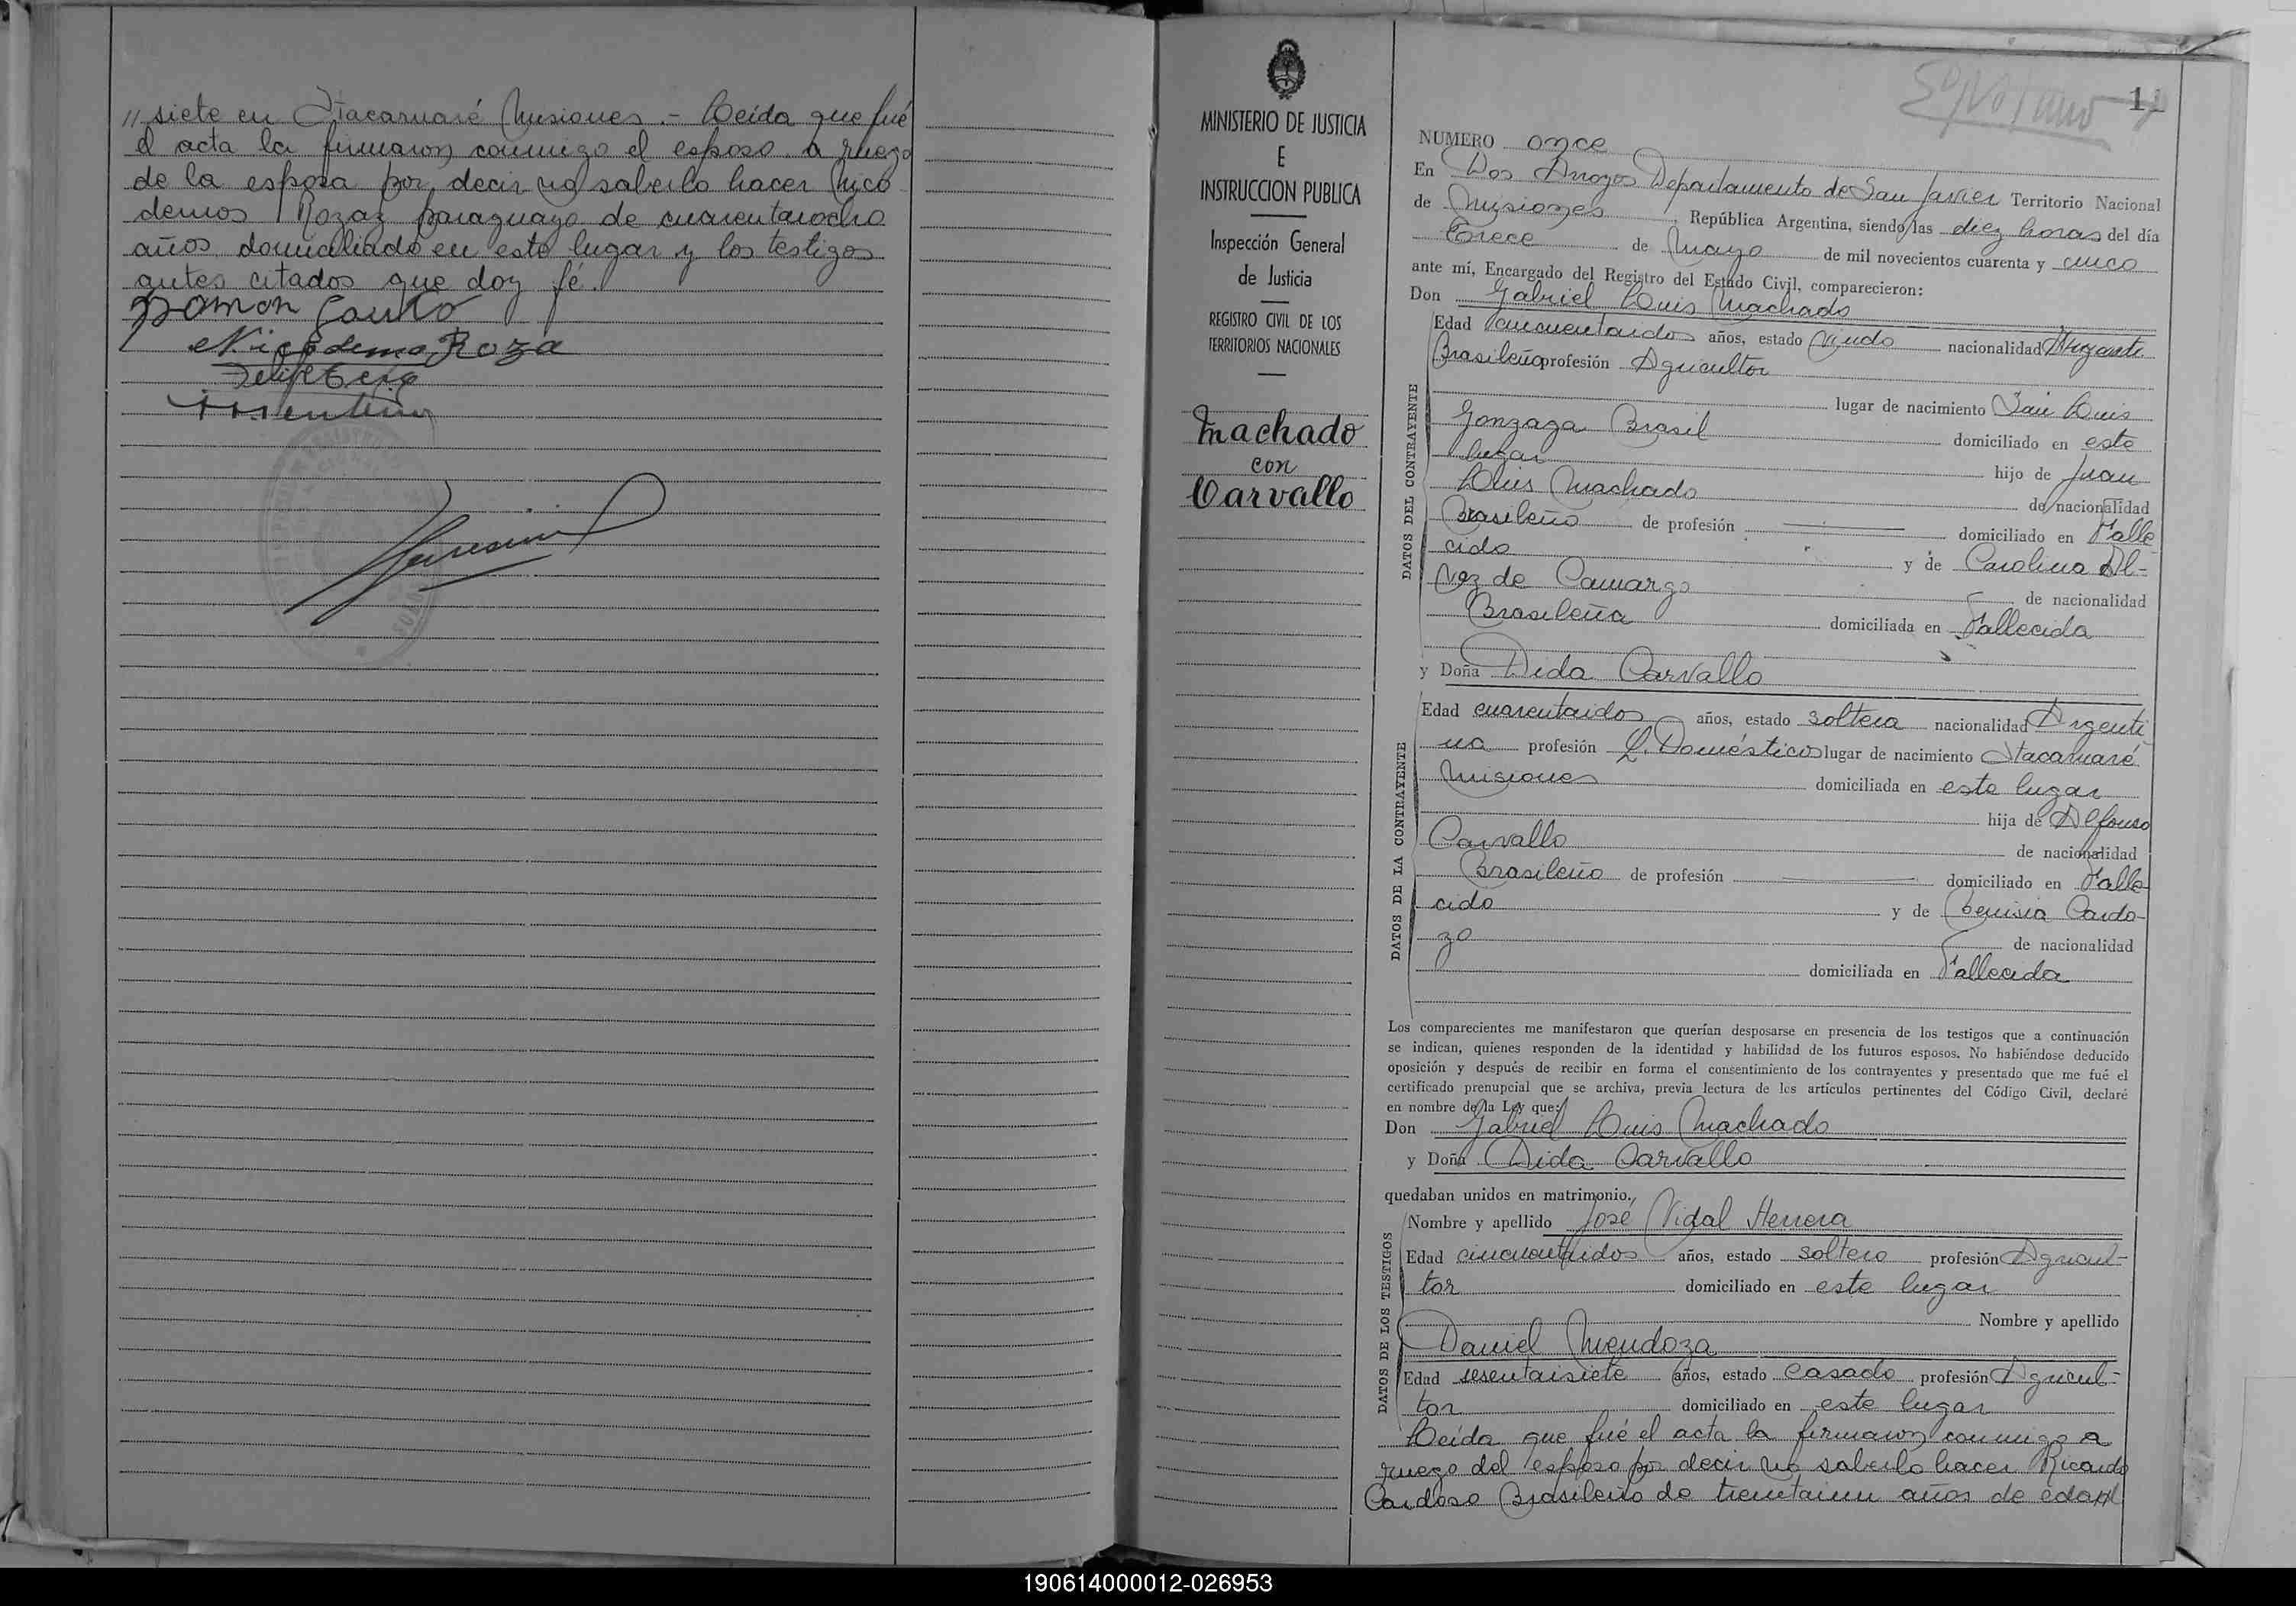 // siete en Itacaruaré Misiones.- Leida que fué
el acta la firmaron conmigo el esposo a ruego
de la esposa por decir no saberlo hacer Nico
demos Rozaz paraguayo de cuarentaiocho
años domiciliado en este lugar y los testigos
antes citados que doy fé.
Nicodemo Roza
11
MINISTERIO DE JUSTICIA
E
INSTRUCCION PUBLICA
Inspección General
de Justicia
REGISTRO CIVIL DE LOS
TERRITORIOS NACIONALES
Machado
con
Carvallo
NUMERO once
En Dos Arroyos Departamento de San Javier Territorio Nacional
de Misiones, República Argentina, siendo las diez horas del día
trece de Mayo de mil novecientos cuarenta y cinco
ante mí, Encargado del Registro del Estado Civil, comparecieron:
Don Gabriel Luis Machado
DATOS DEL CONTRAYENTE
Edad cincuentaidos años, estado Viudo nacionalidad
Brasileño profesión Agricultor
lugar de nacimiento San Luis
Gonzaga Brasil domiciliado en este
lugar hijo de Juan
Luis Machado de nacionalidad
Brasileño de profesión domiciliado en Falle
cido y de Carolina Al-
vez de Camargo de nacionalidad
Brasileña domiciliada en Fallecida
y Doña Dida Carvallo
DATOS DE LA CONTRAYENTE
Edad cuarentaidos años, estado soltera nacionalidad Argenti
na profesión Q. Domésticos lugar de nacimiento Itacaruaré
Misiones domiciliada en este lugar
hija de Alfonso
Carvallo de nacionalidad
Brasileño de profesión domiciliado en Falle
cido y de Benisia Cardo-
zo de nacionalidad
domiciliada en Fallecida
Los comparecientes me manifestaron que querían desposarse en presencia de los testigos que a continuación
se indican, quienes responden de la identidad y habilidad de los futuros esposos. No habiéndose deducido
oposición y después de recibir en forma el consentimiento de los contrayentes y presentado que me fué el
certificado prenupcial que se archiva, previa lectura de los artículos pertinentes del Código Civil, declaré
en nombre de la Ley que:
Don Gabriel Luis Machado
y Doña Dida Carvallo
quedaban unidos en matrimonio.
DATOS DE LOS TESTIGOS
Nombre y apellido José Vidal Herrera
Edad cincuentaidos años, estado soltero profesión Agricul-
tor domiciliado en este lugar
Nombre y apellido
Daniel Mendoza
Edad sesentaisiete años, estado casado profesión Agricul-
tor domiciliado en este lugar
Leída que fué el acta la firmaron conmigo a
ruego del esposo por decir no saberlo hacer Ricardo
Cardoso Brasileño de treintaiun años de edad
190614000012-026953